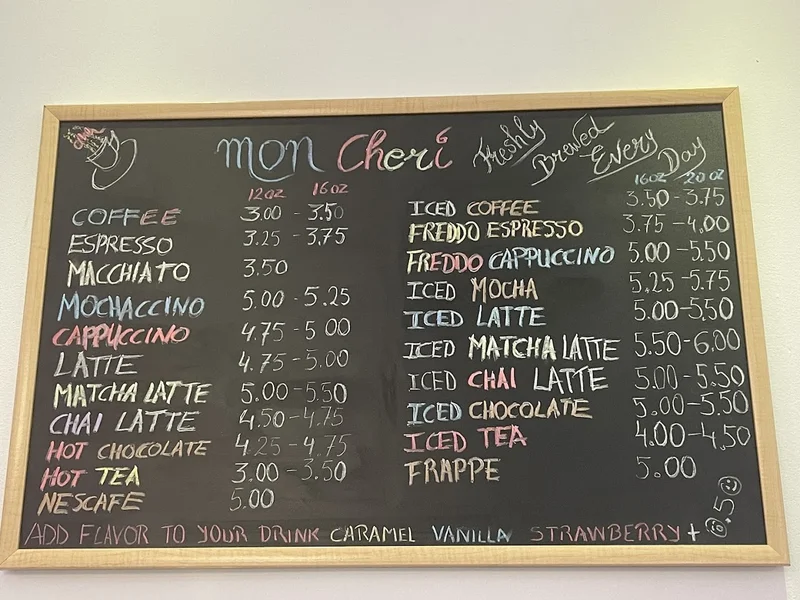 mon Cheri
Freshly Brewed Every Day
12oz 16oz
COFFEE 3.00 - 3.50
ESPRESSO 3.25 - 3.75
MACCHIATO 3.50
MOCHACCINO 5.00 - 5.25
CAPPUCCINO 4.75 - 5.00
LATTE 4.75 - 5.00
MATCHA LATTE 5.00 - 5.50
CHAI LATTE 4.50 - 4.75
HOT CHOCOLATE 4.25 - 4.75
HOT TEA 3.00 - 3.50
NESCAFE 5.00
16oz 20oz
ICED COFFEE 3.50 - 3.75
FREDDO ESPRESSO 3.75 - 4.00
FREDDO CAPPUCCINO 5.00 - 5.50
ICED MOCHA 5.25 - 5.75
ICED LATTE 5.00 - 5.50
ICED MATCHA LATTE 5.50 - 6.00
ICED CHAI LATTE 5.00 - 5.50
ICED CHOCOLATE 5.00 - 5.50
ICED TEA 4.00 - 4.50
FRAPPE 5.00
ADD FLAVOR TO YOUR DRINK CARAMEL VANILLA STRAWBERRY + 0.50